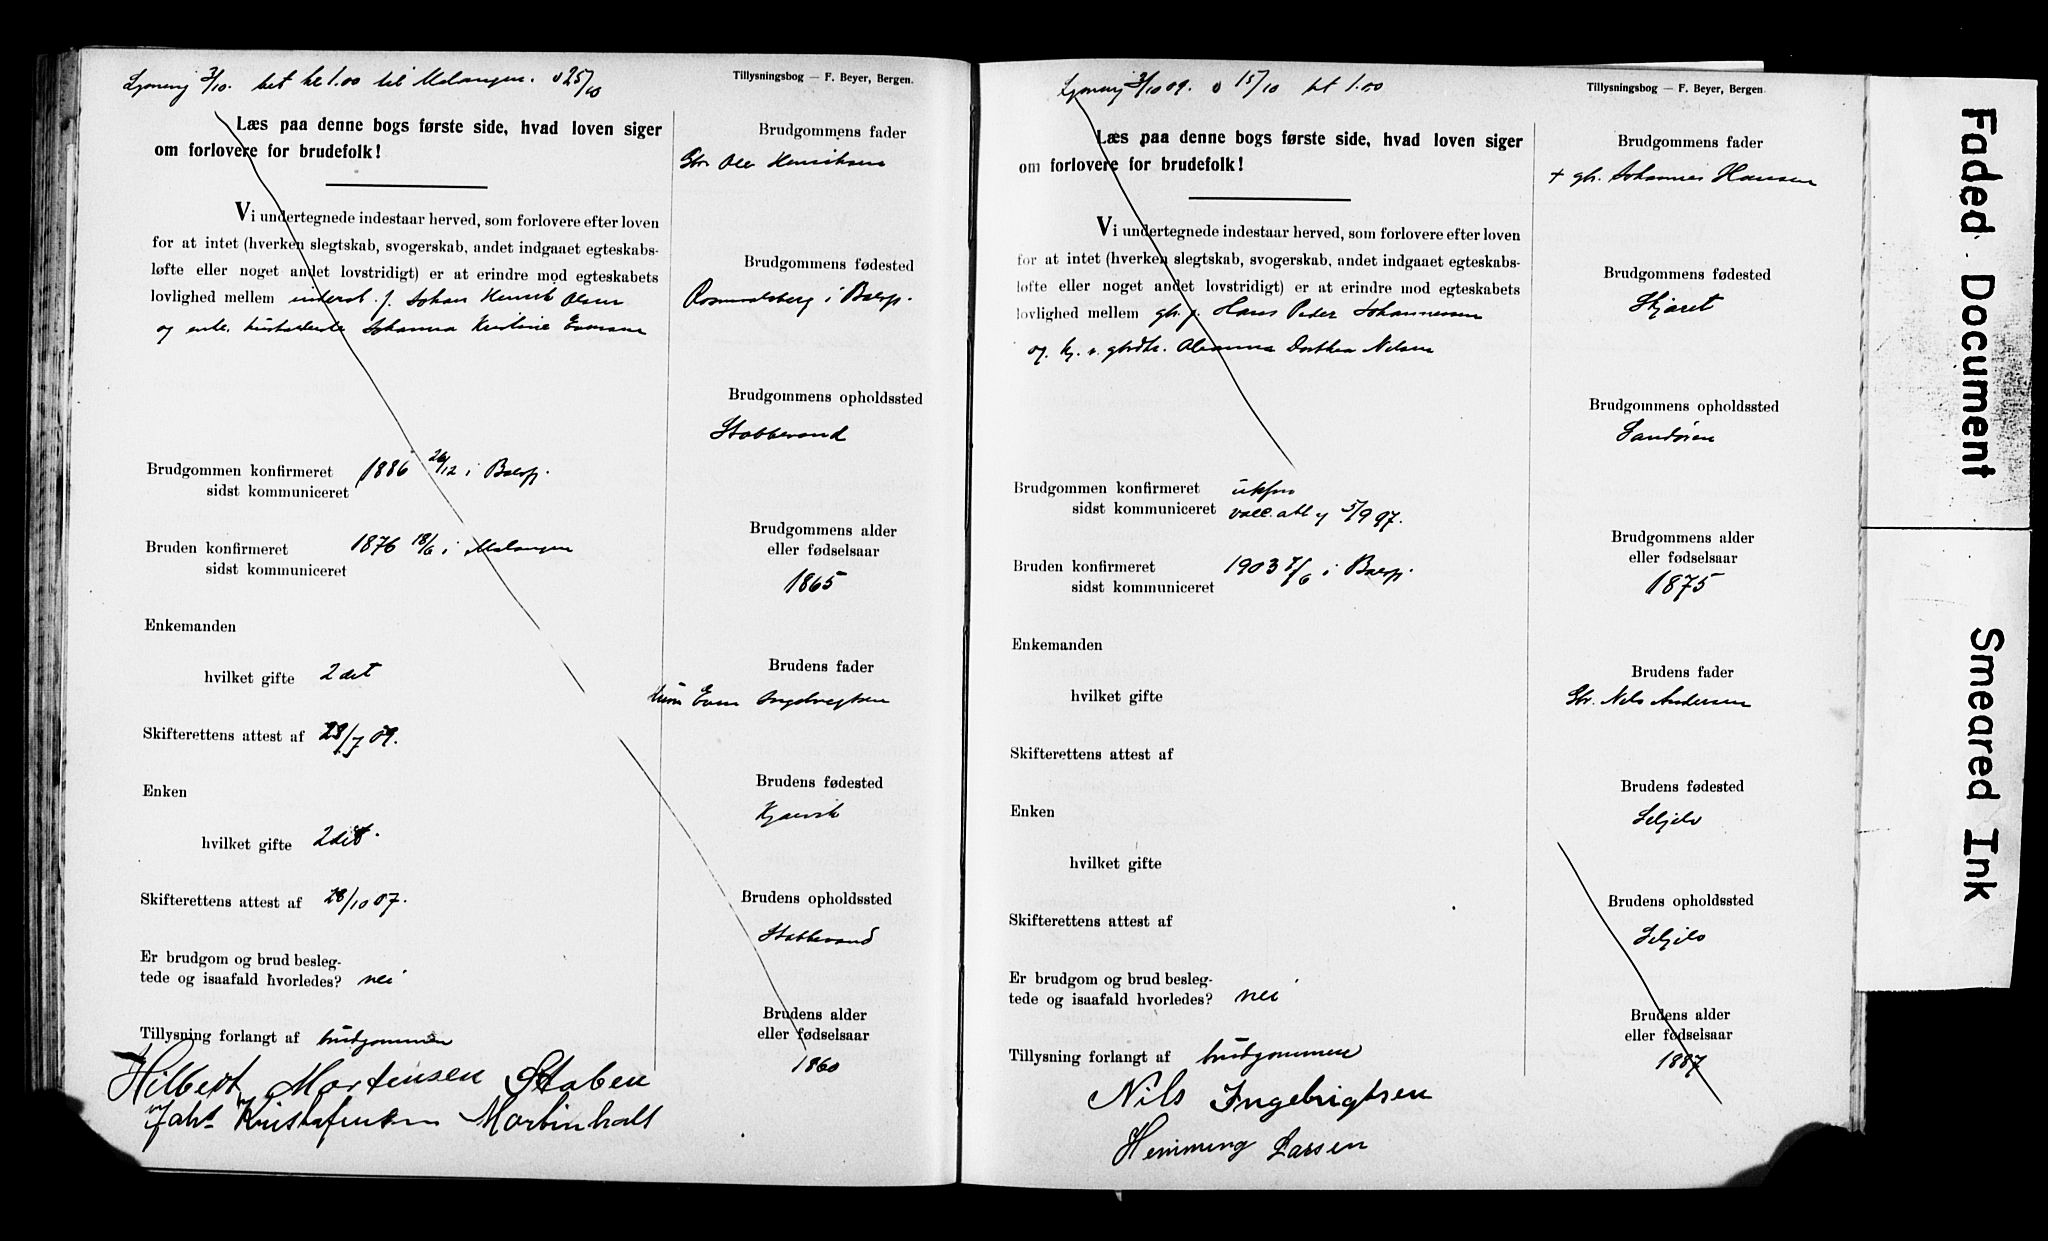 Lysning 3/10. bet kr 1.00 til Malangen. v 25/10
Tillysningsbog — F. Beyer, Bergen.
Læs paa denne bogs første side, hvad loven siger
om forlovere for brudefolk!
Vi undertegnede indestaar herved, som forlovere efter loven
for at intet (hverken slegtskab, svogerskab, andet indgaaet egteskabs-
løfte eller noget andet lovstridigt) er at erindre mod egteskabets
lovlighed mellem inderst f. Johan Henrik Olsen
og enke, Johanna Kristine
Brudgommen konfirmeret 1886 26/12 i Balsfj.
sidst kommuniceret
Bruden konfirmeret 1876 18/6 i Malangen
sidst kommuniceret
Enkemanden
hvilket gifte 2det
Skifterettens attest af 23/7 09.
Enken
hvilket gifte 2det.
Skifterettens attest af 28/10 07.
Er brudgom og brud besleg-
tede og isaafald hvorledes? nei
Tillysning forlangt af brudgommen
Hilbert Mortensen Staben
Joh. Kristofersen Mortenhals
Brudgommens fader
Gbr. Ole Henriksen
Brudgommens fødested
i Balsfj.
Brudgommens opholdssted
Stobbevand
Brudgommens alder
eller fødselsaar
1865
Brudens fader
Even
Brudens fødested
Kjærvik
Brudens opholdssted
Stobbevand
Brudens alder
eller fødselsaar
1860
Lysning 3/10 09. v 15/10 bt 1.00
Tillysningsbog — F. Beyer, Bergen.
Læs paa denne bogs første side, hvad loven siger
om forlovere for brudefolk!
Vi undertegnede indestaar herved, som forlovere efter loven
for at intet (hverken slegtskab, svogerskab, andet indgaaet egteskabs-
løfte eller noget andet lovstridigt) er at erindre mod egteskabets
lovlighed mellem gbr. f. Hans Peder Johannessen
og Dorthea Nilsen
Brudgommen konfirmeret ukfm
sidst kommuniceret vacc. att 5/9 97.
Bruden konfirmeret 1903 7/6 i Balsfj.
sidst kommuniceret
Enkemanden
hvilket gifte
Skifterettens attest af
Enken
hvilket gifte
Skifterettens attest af
Er brudgom og brud besleg-
tede og isaafald hvorledes? nei
Tillysning forlangt af brudgommen
Nils Ingebrigtsen
Hemming Larsen
Brudgommens fader
+ gbr. Johannes Hansen
Brudgommens fødested
Skjæret
Brudgommens opholdssted
Sandøren
Brudgommens alder
eller fødselsaar
1875
Brudens fader
Gbr. Nils Andersen
Brudens fødested
Seljelv
Brudens opholdssted
Seljelv
Brudens alder
eller fødselsaar
1887
Faded Document
Smeared Ink